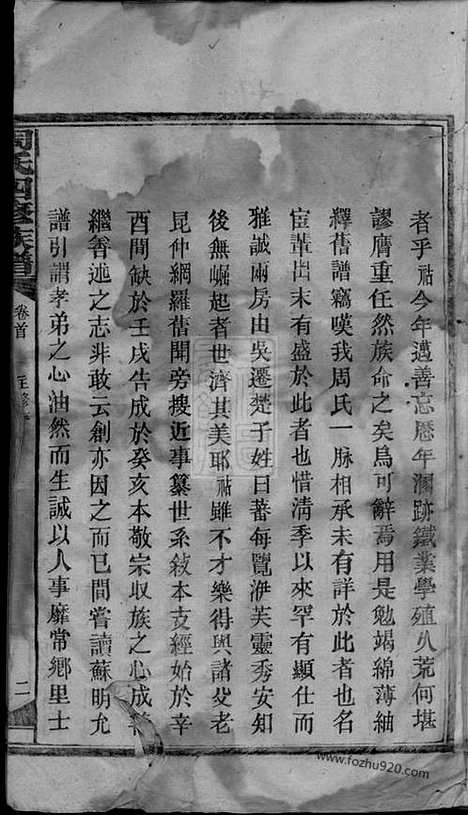 者乎祜今年邁善忘歷年溷跡鐵業學殖久荒何堪
謬膺重任然族命之矣烏可辭焉用是勉竭綿薄紬
繹舊譜竊嘆我周氏一脉相承未有詳於此者也名
宦輩出未有盛於此者也惜清季以來罕有顯仕而
雅誠兩房由吳遷楚子姓日蕃每覽洢芙靈秀安知
後無崛起者世濟其美耶祜雖不才樂得與諸父老
昆仲網羅舊聞旁搜近事纂世系敍本支經始於辛
酉間缺於壬戌告成於癸亥本敬宗収族之心成
繼善述之志非敢云創亦因之而已間嘗讀蘇明允
譜引謂孝弟之心油然而生誠以人事靡常鄉里士
周氏四修族譜
卷首
二
www.fozhu920.com